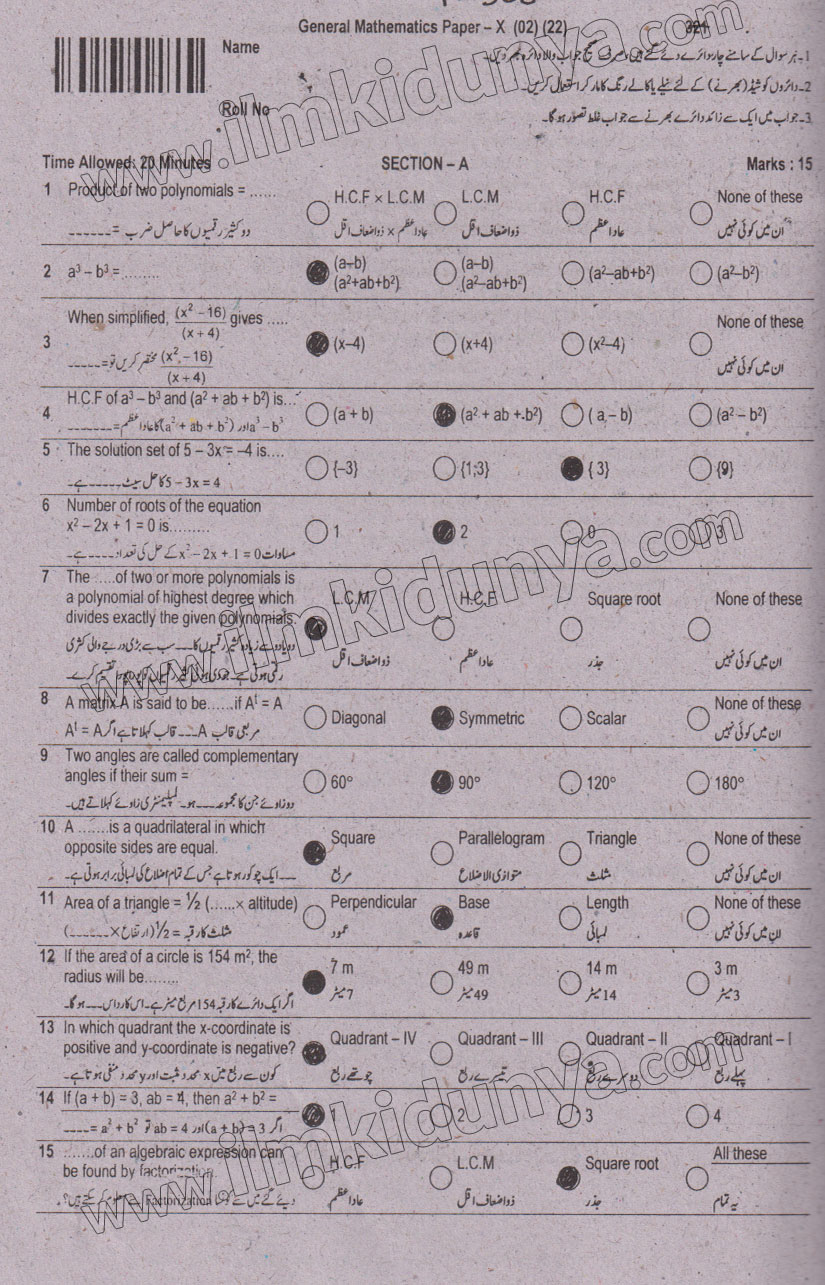 General Mathematics Paper – X (02) (22) 321
Name
1۔ ہر سوال کے سامنے چار دائرے دئے گئے ہیں، صرف صحیح جواب والا دائرہ بھر دیں۔
2۔ دائروں کو شیڈ (بھرنے) کے لئے نیلے یا کالے رنگ کا مارکر استعمال کریں۔
Roll No
3۔ جواب میں ایک سے زائد دائرے بھرنے سے جواب غلط تصور ہوگا۔
Time Allowed: 20 Minutes SECTION – A Marks : 15
1 Product of two polynomials = ...... H.C.F × L.C.M L.C.M H.C.F None of these
دو کثیر رقمیوں کا حاصل ضرب = ______ عاداعظم × ذواضعاف اقل ذواضعاف اقل عاداعظم ان میں کوئی نہیں
2 a³ – b³ = ......... (a–b) (a²+ab+b²) (a–b) (a²–ab+b²) (a²–ab+b²) (a²–b²)
3 When simplified, (x² - 16) / (x + 4) gives ..... (x–4) (x+4) (x²–4) None of these
(x² - 16) / (x + 4) مختصر کریں تو = _____ ان میں کوئی نہیں
4 H.C.F of a³ – b³ and (a² + ab + b²) is... (a + b) (a² + ab + b²) ( a – b) (a² – b²)
a³ – b³ اور (a² + ab + b²) کا عاداعظم = _______
5 The solution set of 5 – 3x = –4 is.... {–3} {1,3} { 3} {9}
5 – 3x = 4 کا حل سیٹ _____ ہے۔
6 Number of roots of the equation
x² – 2x + 1 = 0 is......... 1 2 0 3
مساوات x² – 2x + 1 = 0 کے حل کی تعداد ____ ہے۔
7 The .....of two or more polynomials is
a polynomial of highest degree which
divides exactly the given polynomials. L.C.M H.C.F Square root None of these
ذواضعاف اقل عاداعظم جذر ان میں کوئی نہیں
8 A matrix A is said to be......if Aᵗ = A Diagonal Symmetric Scalar None of these
مربعی قالب A ___ قالب کہلاتا ہے اگر Aᵗ = A ان میں کوئی نہیں
9 Two angles are called complementary
angles if their sum = 60° 90° 120° 180°
دو زاوئے جن کا مجموعہ ____ ہو۔ کمپلیمنٹری زاوئے کہلاتے ہیں۔
10 A .......is a quadrilateral in which
opposite sides are equal. Square Parallelogram Triangle None of these
___ ایک چوکور ہوتا ہے جس کے تمام اضلاع کی لمبائی برابر ہوتی ہے۔ مربع متوازی الاضلاع مثلث ان میں کوئی نہیں
11 Area of a triangle = ½ (......× altitude) Perpendicular Base Length None of these
مثلث کا رقبہ = ½ (ارتفاع × ______) عمود قاعدہ لمبائی ان میں کوئی نہیں
12 If the area of a circle is 154 m², the
radius will be........ 7 m 49 m 14 m 3 m
اگر ایک دائرے کا رقبہ 154 مربع میٹر ہے۔ اس کا رداس ___ ہوگا۔ 7 میٹر 49 میٹر 14 میٹر 3 میٹر
13 In which quadrant the x-coordinate is
positive and y-coordinate is negative? Quadrant – IV Quadrant – III Quadrant – II Quadrant – I
کون سے ربع میں x محدد مثبت اور y محدد منفی ہوتا ہے۔ چوتھے ربع تیسرے ربع دوسرے ربع پہلے ربع
14 If (a + b) = 3, ab = 4, then a² + b² = 1 2 3 4
اگر (a + b) = 3 اور ab = 4 تو a² + b² = ____
15 .......of an algebraic expression can
be found by factorization. H.C.F L.C.M Square root All these
عاداعظم ذواضعاف اقل جذر یہ تمام
www.ilmkidunya.com
www.ilmkidunya.com
www.ilmkidunya.com